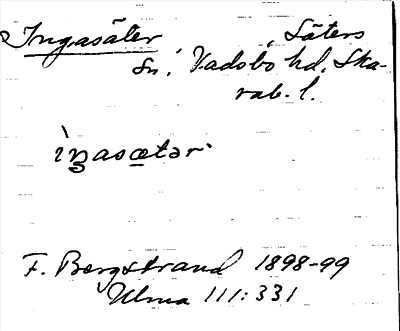 Ingasäter Säters
sn. Vadsbo hd, Ska-
rab. l.
ìŋasætər
F. Bergstrand 1898-99
Ulma 111:331